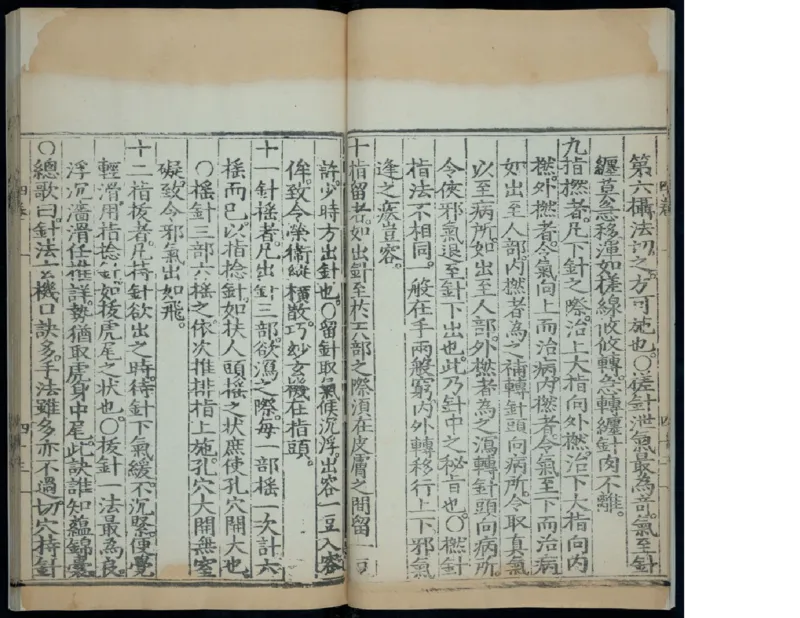 第六攝法切之方可施也○搓針泄氣最為奇氣至針
纏莫急移渾如搓線攸攸轉急轉纏針肉不離
九指撚者凡下針之際治上大指向外撚治下大指向內
撚外撚者令氣向上而治病內撚者令氣至下而治病
如出至人部內撚者為之補轉針頭向病所令取真氣
以至病所如出至人部外撚者為之瀉轉針頭向病所
令俠邪氣退至針下出也此乃針中之秘旨也○撚針
指法不相同一般在手兩般窮內外轉移行上下邪氣
逢之疾豈容
十指留者如出針至於天部之際湏在皮膚之間留一豆
許少時方出針也○留針取氣候沉浮出容一豆入容
侔致令榮衛縱橫散巧玅玄機在指頭
十一針搖者凡出針三部欲瀉之際每一部搖一次計六
搖而已以指捻針如扶人頭搖之状庶使孔穴開大也
○搖針三部六搖之依次推排指上施孔穴大開無窒
礙致令邪氣出如飛
十二指拔者凡持針欲出之時待針下氣緩不沉緊便覺
輕滑用指捻針如拔虎尾之状也○拔針一法最為良
浮沉濇滑任推詳勢猶取虎身中尾此訣誰知蘊錦囊
○總歌曰針法玄機口訣多手法雖多亦不過切穴持針
四